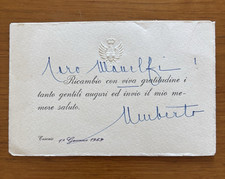 Caro Manolfi !
Ricambio con viva gratitudine i
tanto gentili auguri ed invio il mio me-
more saluto.
Umberto
Cascais